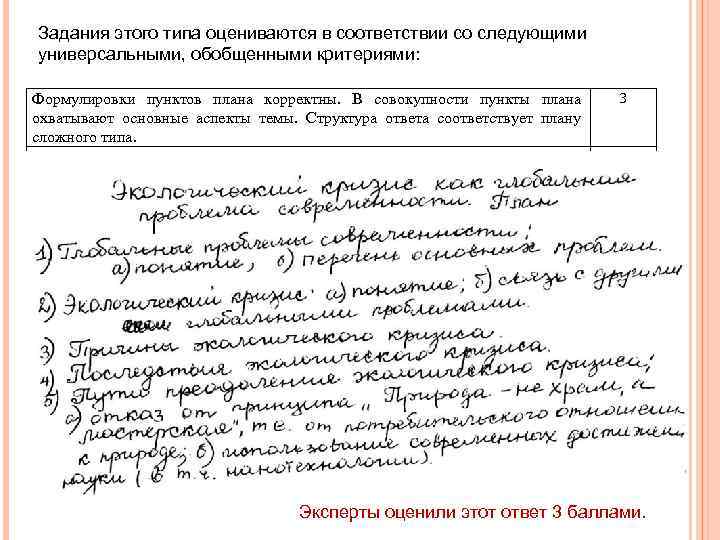 Задания этого типа оцениваются в соответствии со следующими
универсальными, обобщенными критериями:
Формулировки пунктов плана корректны. В совокупности пункты плана
охватывают основные аспекты темы. Структура ответа соответствует плану
сложного типа.
3
Экологический кризис как глобальная
проблема современности. План
1) Глобальные проблемы современности:
а) понятие, б) перечень основных проблем.
2) Экологический кризис: а) понятие; б) связь с другими
глобальными проблемами.
3) Причины экологического кризиса.
4) Последствия экологического кризиса.
5) Пути преодоления экологического кризиса:
а) отказ от принципа „Природа - не храм, а
мастерская", т.е. от потребительского отношени
к природе; б) использование современных достижен
науки (в т.ч. нанотехнологии).
Эксперты оценили этот ответ 3 баллами.